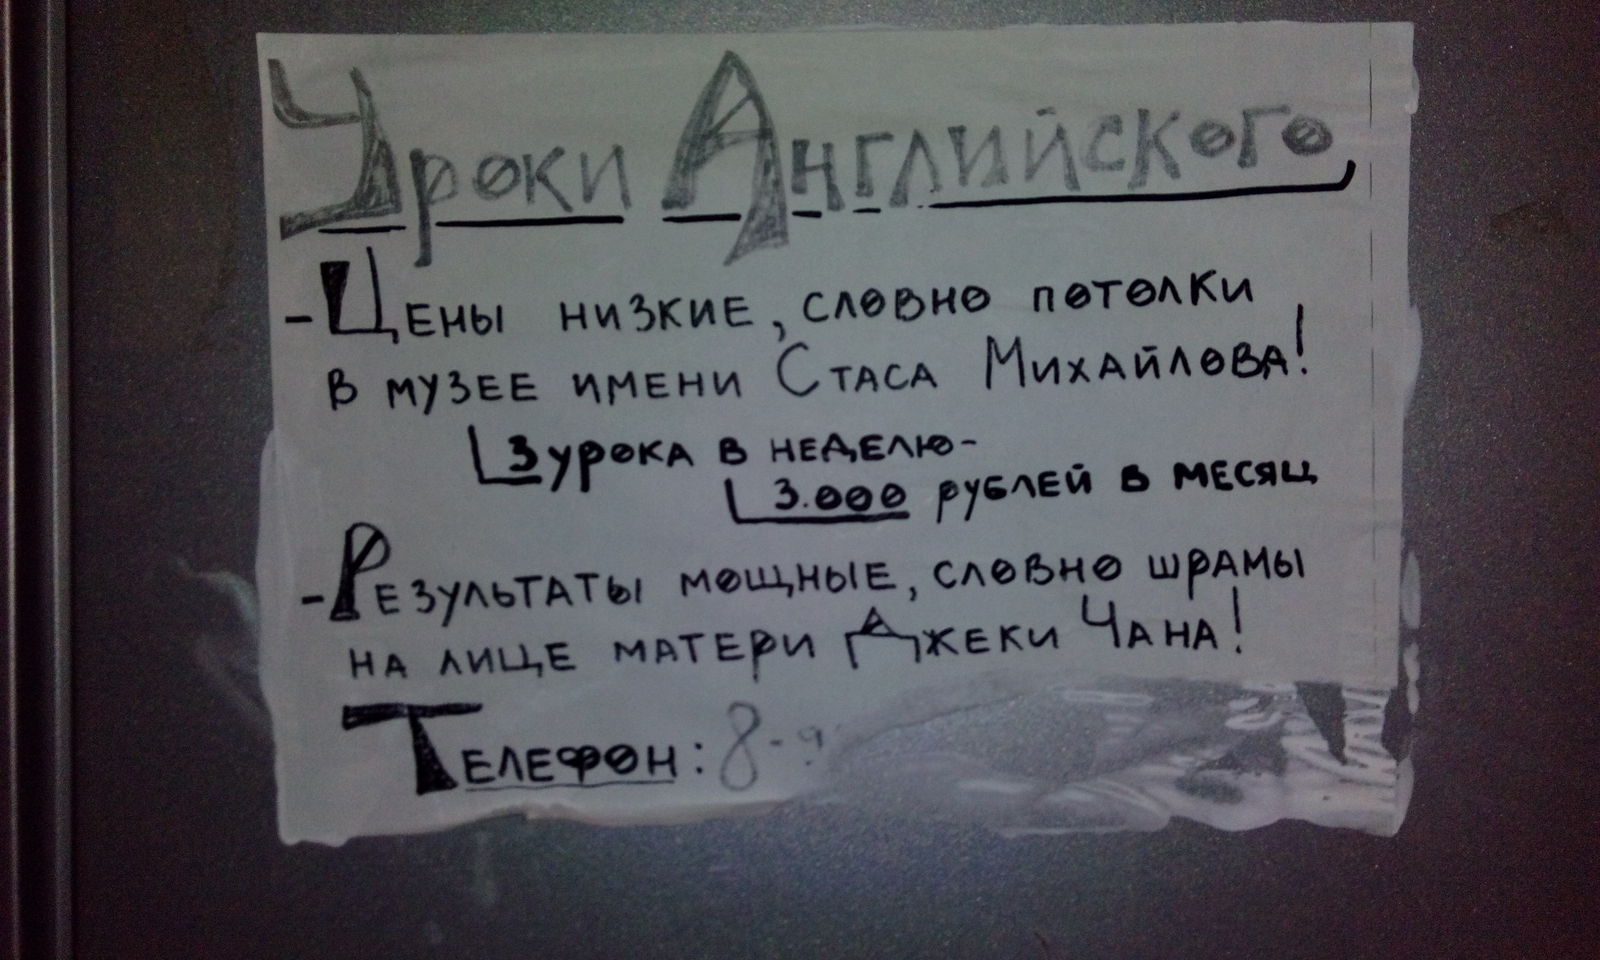 Уроки Английского
- Цены низкие, словно потолки
в музее имени Стаса Михайлова!
3 урока в неделю -
3.000 рублей в месяц
- Результаты мощные, словно шрамы
на лице матери Джеки Чана!
Телефон: 8-9